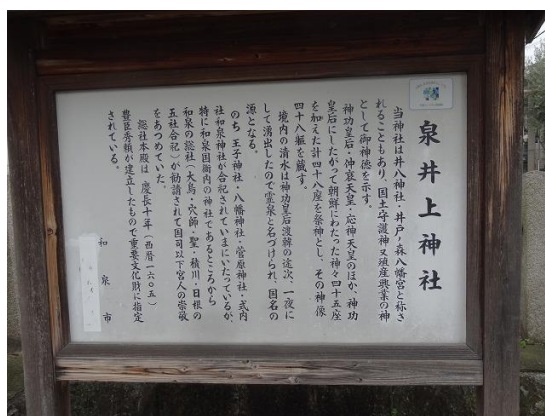 泉井上神社
当神社は井八神社・井戸ノ森八幡宮と称さ
れることもあり、国土守護神又殖産興業の神
として御神徳を示す。
神功皇后・仲哀天皇・応神天皇のほか、神功
皇后にしたがって朝鮮にわたった神々四十五座
を加えた計四十八座を祭神とし、その神像
四十八躯を蔵す。
境内の清水は神功皇后渡韓の途次、一夜に
して湧出したので霊泉と名づけられ、国名の
源となる。
のち王子神社・八幡神社・菅原神社・式内
社和泉神社が合祀されていまにいたっているが、
特に和泉国衙内の神社であるところから
和泉の総社(大鳥・穴師・聖・積川・日根の
五社合祀)が勧請されて国司以下官人の崇敬
をあつめていた。
総社本殿は慶長十年(西暦一六〇五)
豊臣秀頼が建立したもので重要文化財に指定
されている。
和泉市